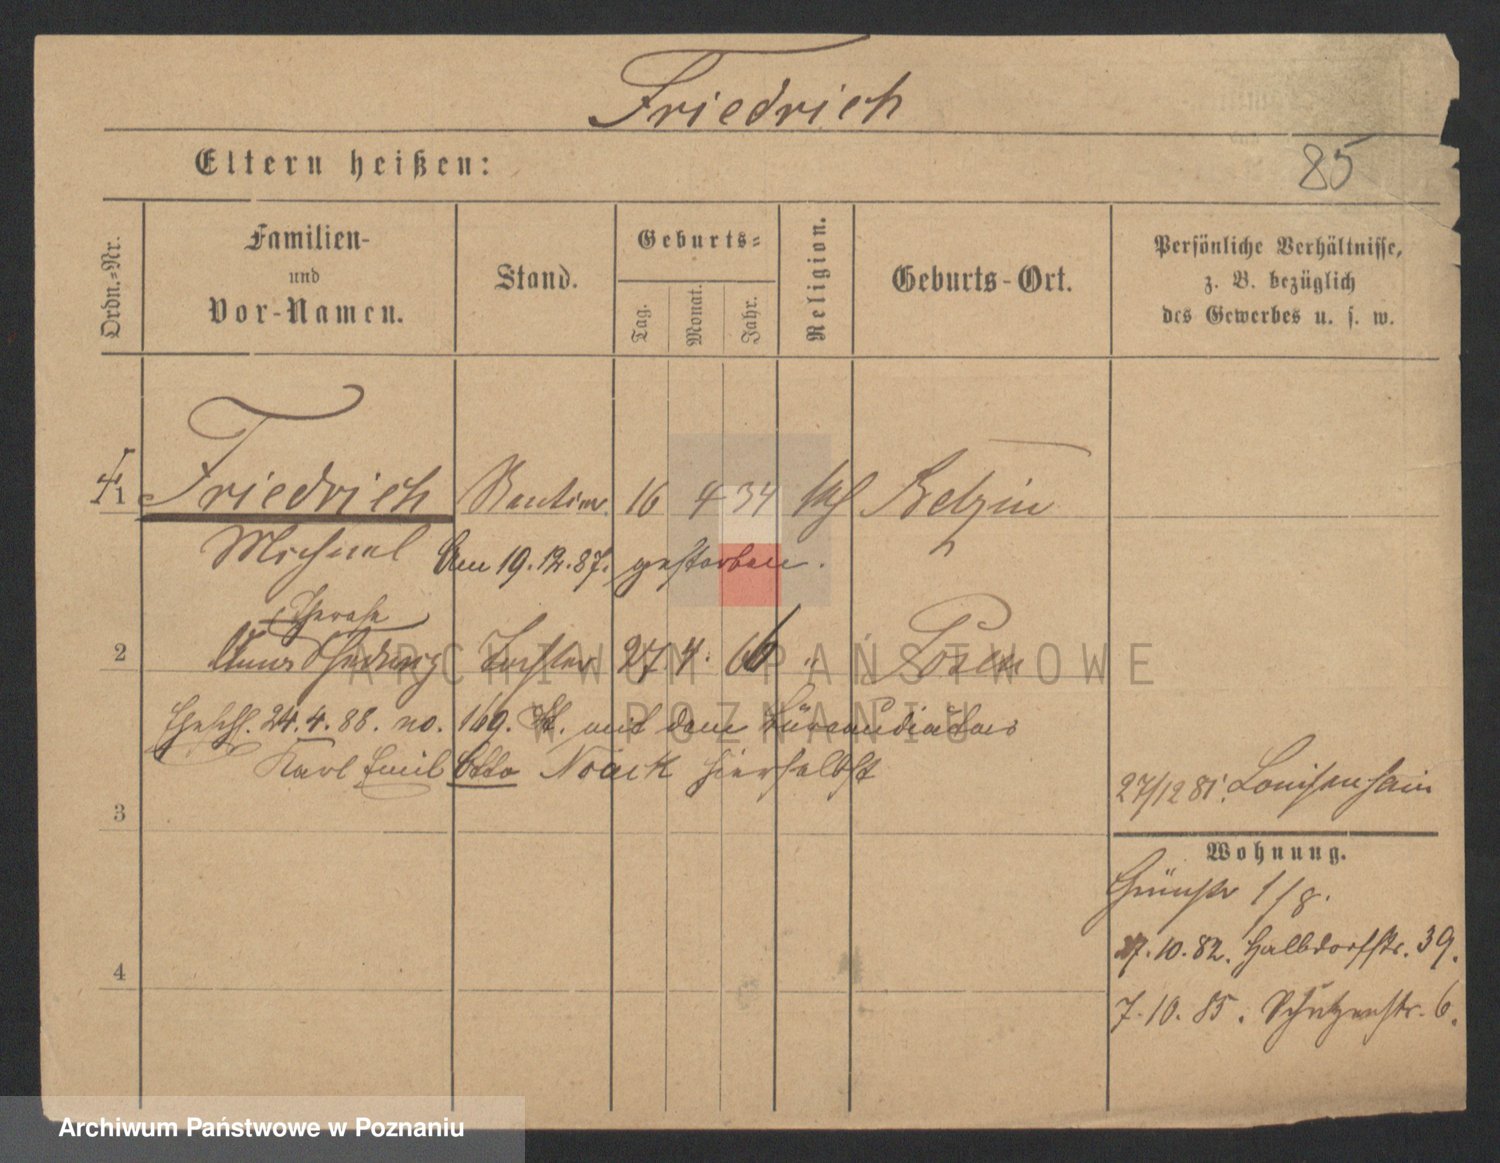 Friedrich
Eltern heißen:
85
Ordn.-Nr.
Familien-
und
Vor-Namen.
Stand.
Geburts-
Tag.
Monat.
Jahr.
Religion.
Geburts-Ort.
Persönliche Verhältnisse,
z. B. bezüglich
des Gewerbes u. s. w.
1 Friedrich Rentier 16 4 34 kth Betzin
Michael Am 19.12.87. gestorben.
Therese
2 Anna Hedwig Tochter 27 4. 66 " Posen
Ehesch. 24.4.88. no. 169. St. mit dem Büreaudiätar
Karl Emil Otto Noack hierselbst
27/12 81. Louisenhain
3
Wohnung.
Grünstr 1/8.
7.10.82. Halbdorfstr. 39.
4
7.10.85. Schützenstr. 6.
ARCHIWUM PAŃSTWOWE
W POZNANIU
Archiwum Państwowe w Poznaniu